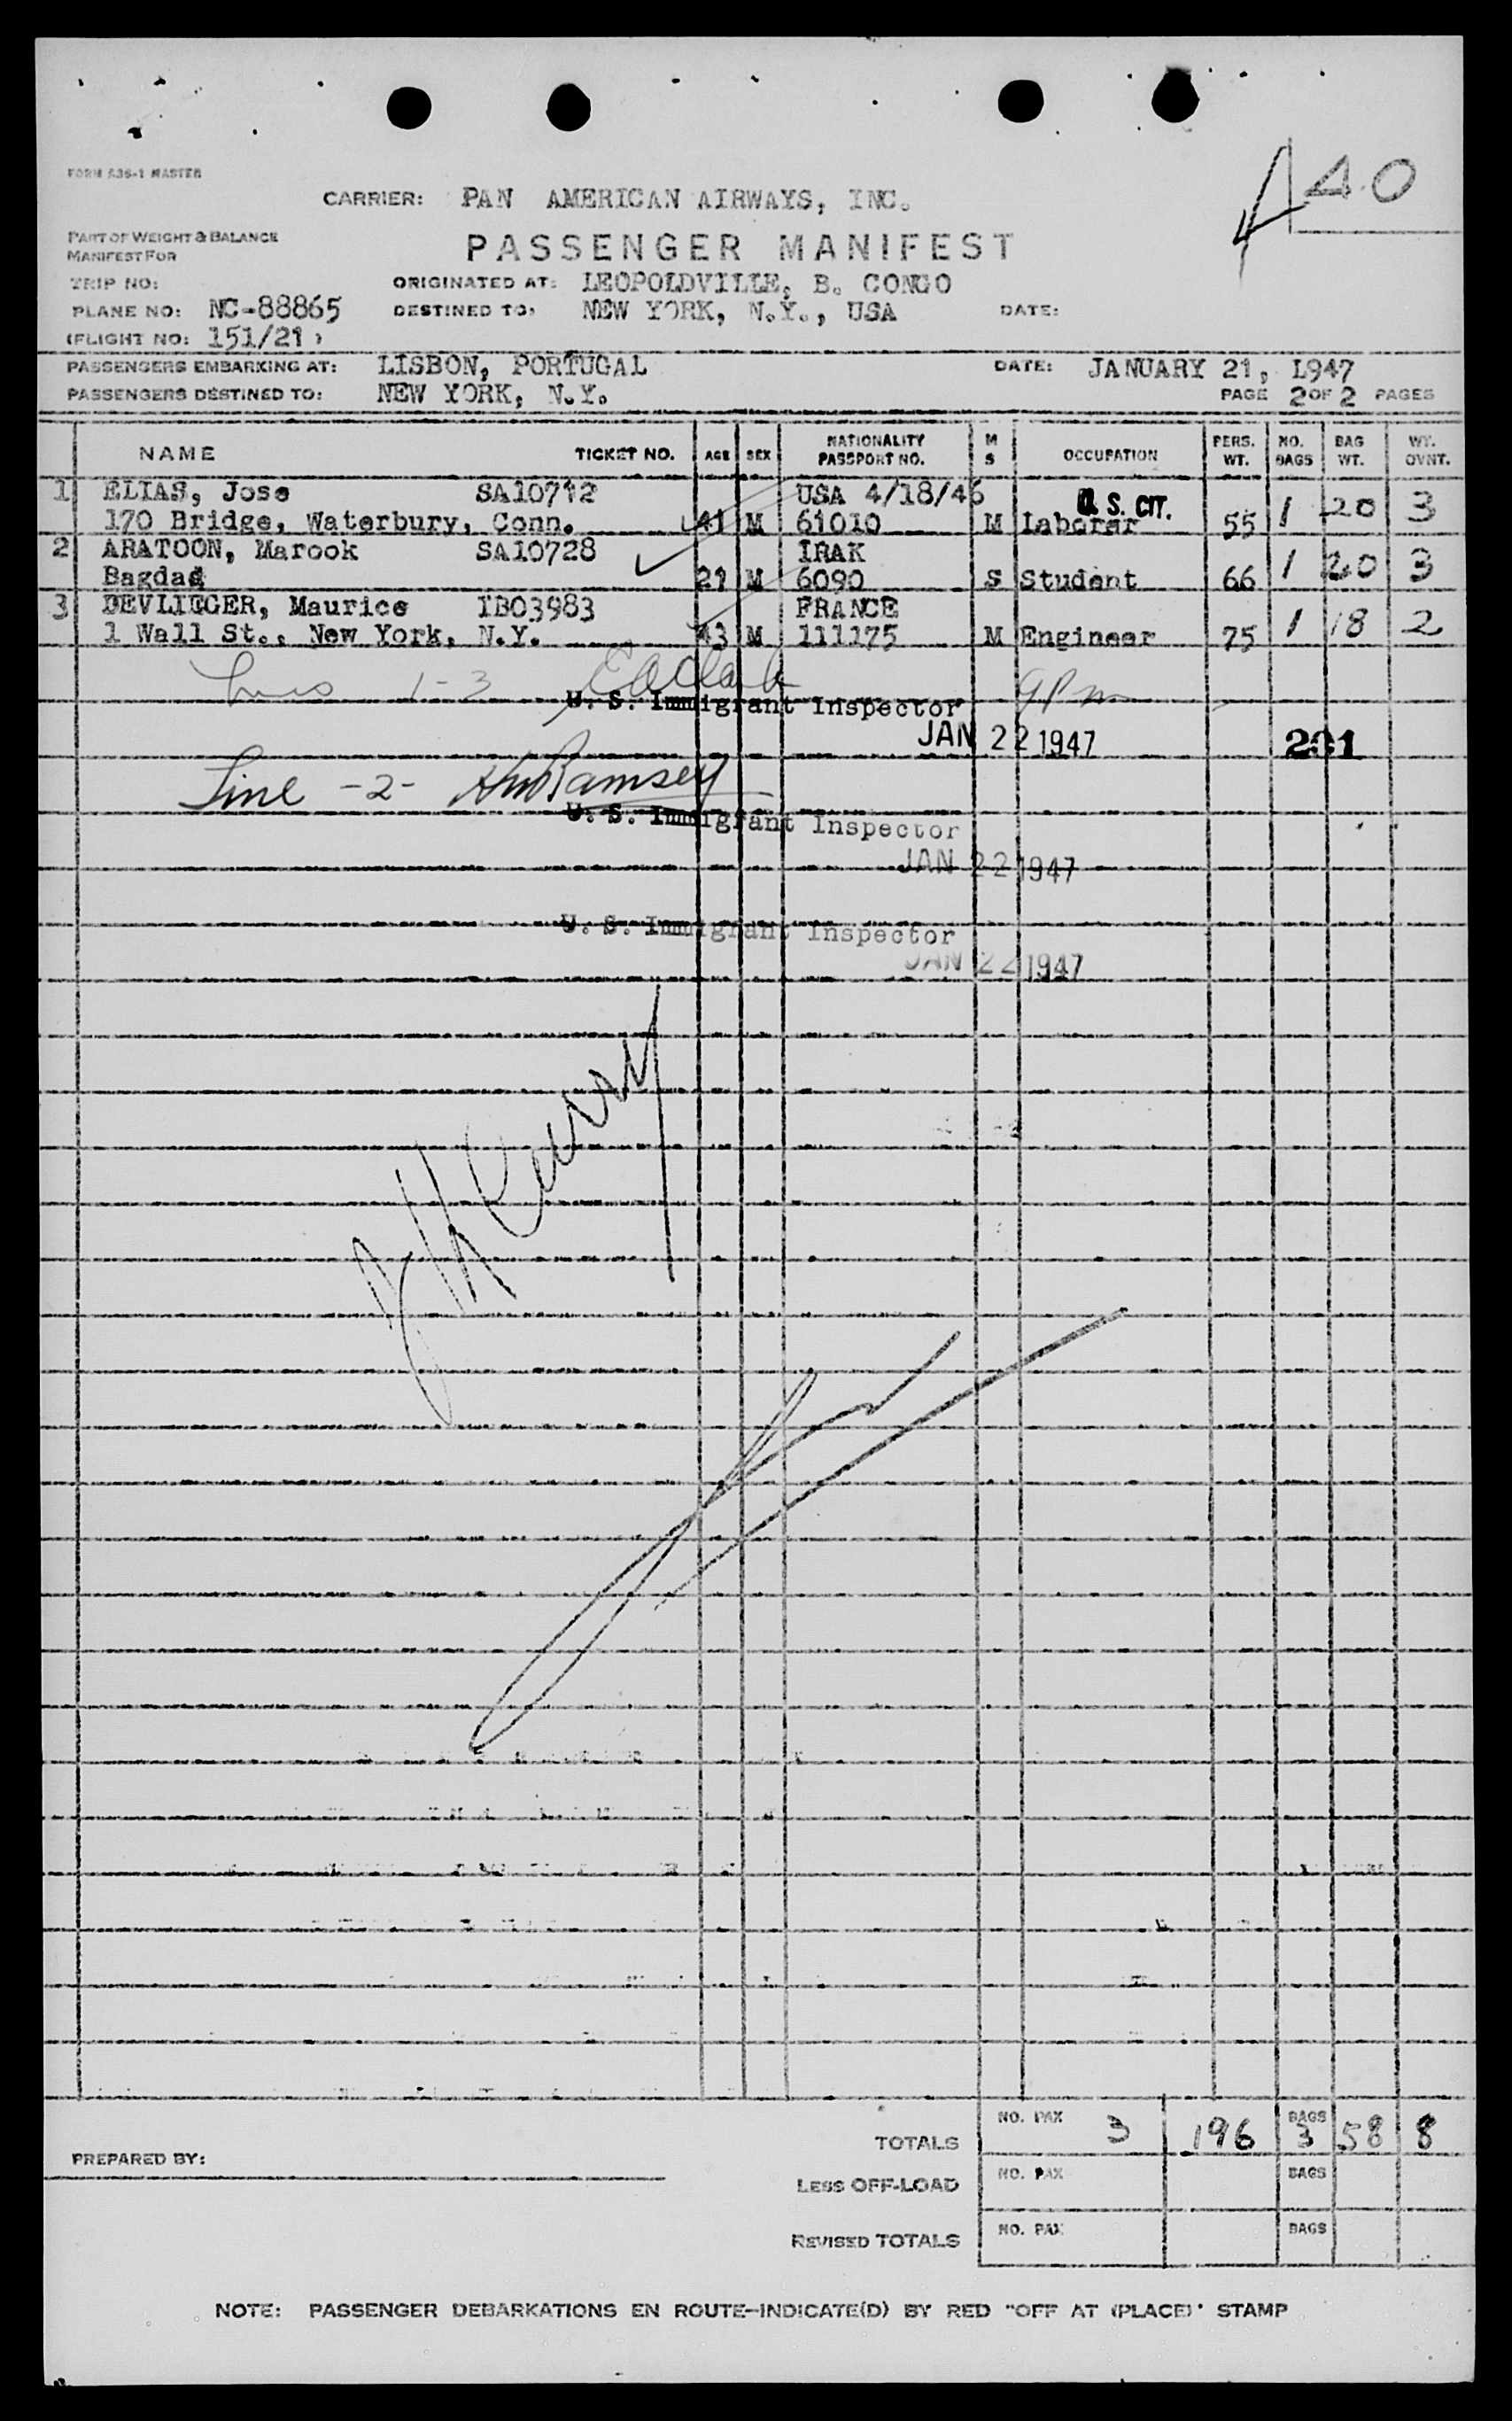 FORM 536-1 MASTER
A 40
CARRIER: PAN AMERICAN AIRWAYS, INC.
PART OF WEIGHT & BALANCE
MANIFEST FOR
PASSENGER MANIFEST
TRIP NO: ORIGINATED AT: LEOPOLDVILLE, B. CONGO
PLANE NO: NC-88865 DESTINED TO: NEW YORK, N.Y., USA DATE:
(FLIGHT NO: 151/21 )
PASSENGERS EMBARKING AT: LISBON, PORTUGAL DATE: JANUARY 21, L947
PASSENGERS DESTINED TO: NEW YORK, N.Y. PAGE 2 OF 2 PAGES
NAME TICKET NO. AGE SEX NATIONALITY PASSPORT NO. M S OCCUPATION PERS. WT. NO. BAGS BAG WT. WT. OVNT.
1 ELIAS, Jose SA10712 USA 4/18/46 U.S. CIT.
170 Bridge, Waterbury, Conn. 41 M 61010 M Laborer 55 1 20 3
2 ARATOON, Marook SA10728 IRAK
Bagdad 21 M 6090 S Student 66 1 20 3
3 DEVLIEGER, Maurice IB03983 FRANCE
1 Wall St., New York, N.Y. 43 M 111175 M Engineer 75 1 18 2
1-3 9 Pm
U. S. Immigrant Inspector
JAN 22 1947 201
Line -2- Ramsey
U. S. Immigrant Inspector
JAN 22 1947
U. S. Immigrant Inspector
JAN 22 1947
TOTALS NO. PAX 3 196 BAGS 3 58 8
PREPARED BY:
LESS OFF-LOAD NO. PAX BAGS
REVISED TOTALS NO. PAX BAGS
NOTE: PASSENGER DEBARKATIONS EN ROUTE-INDICATE(D) BY RED "OFF AT (PLACE)" STAMP